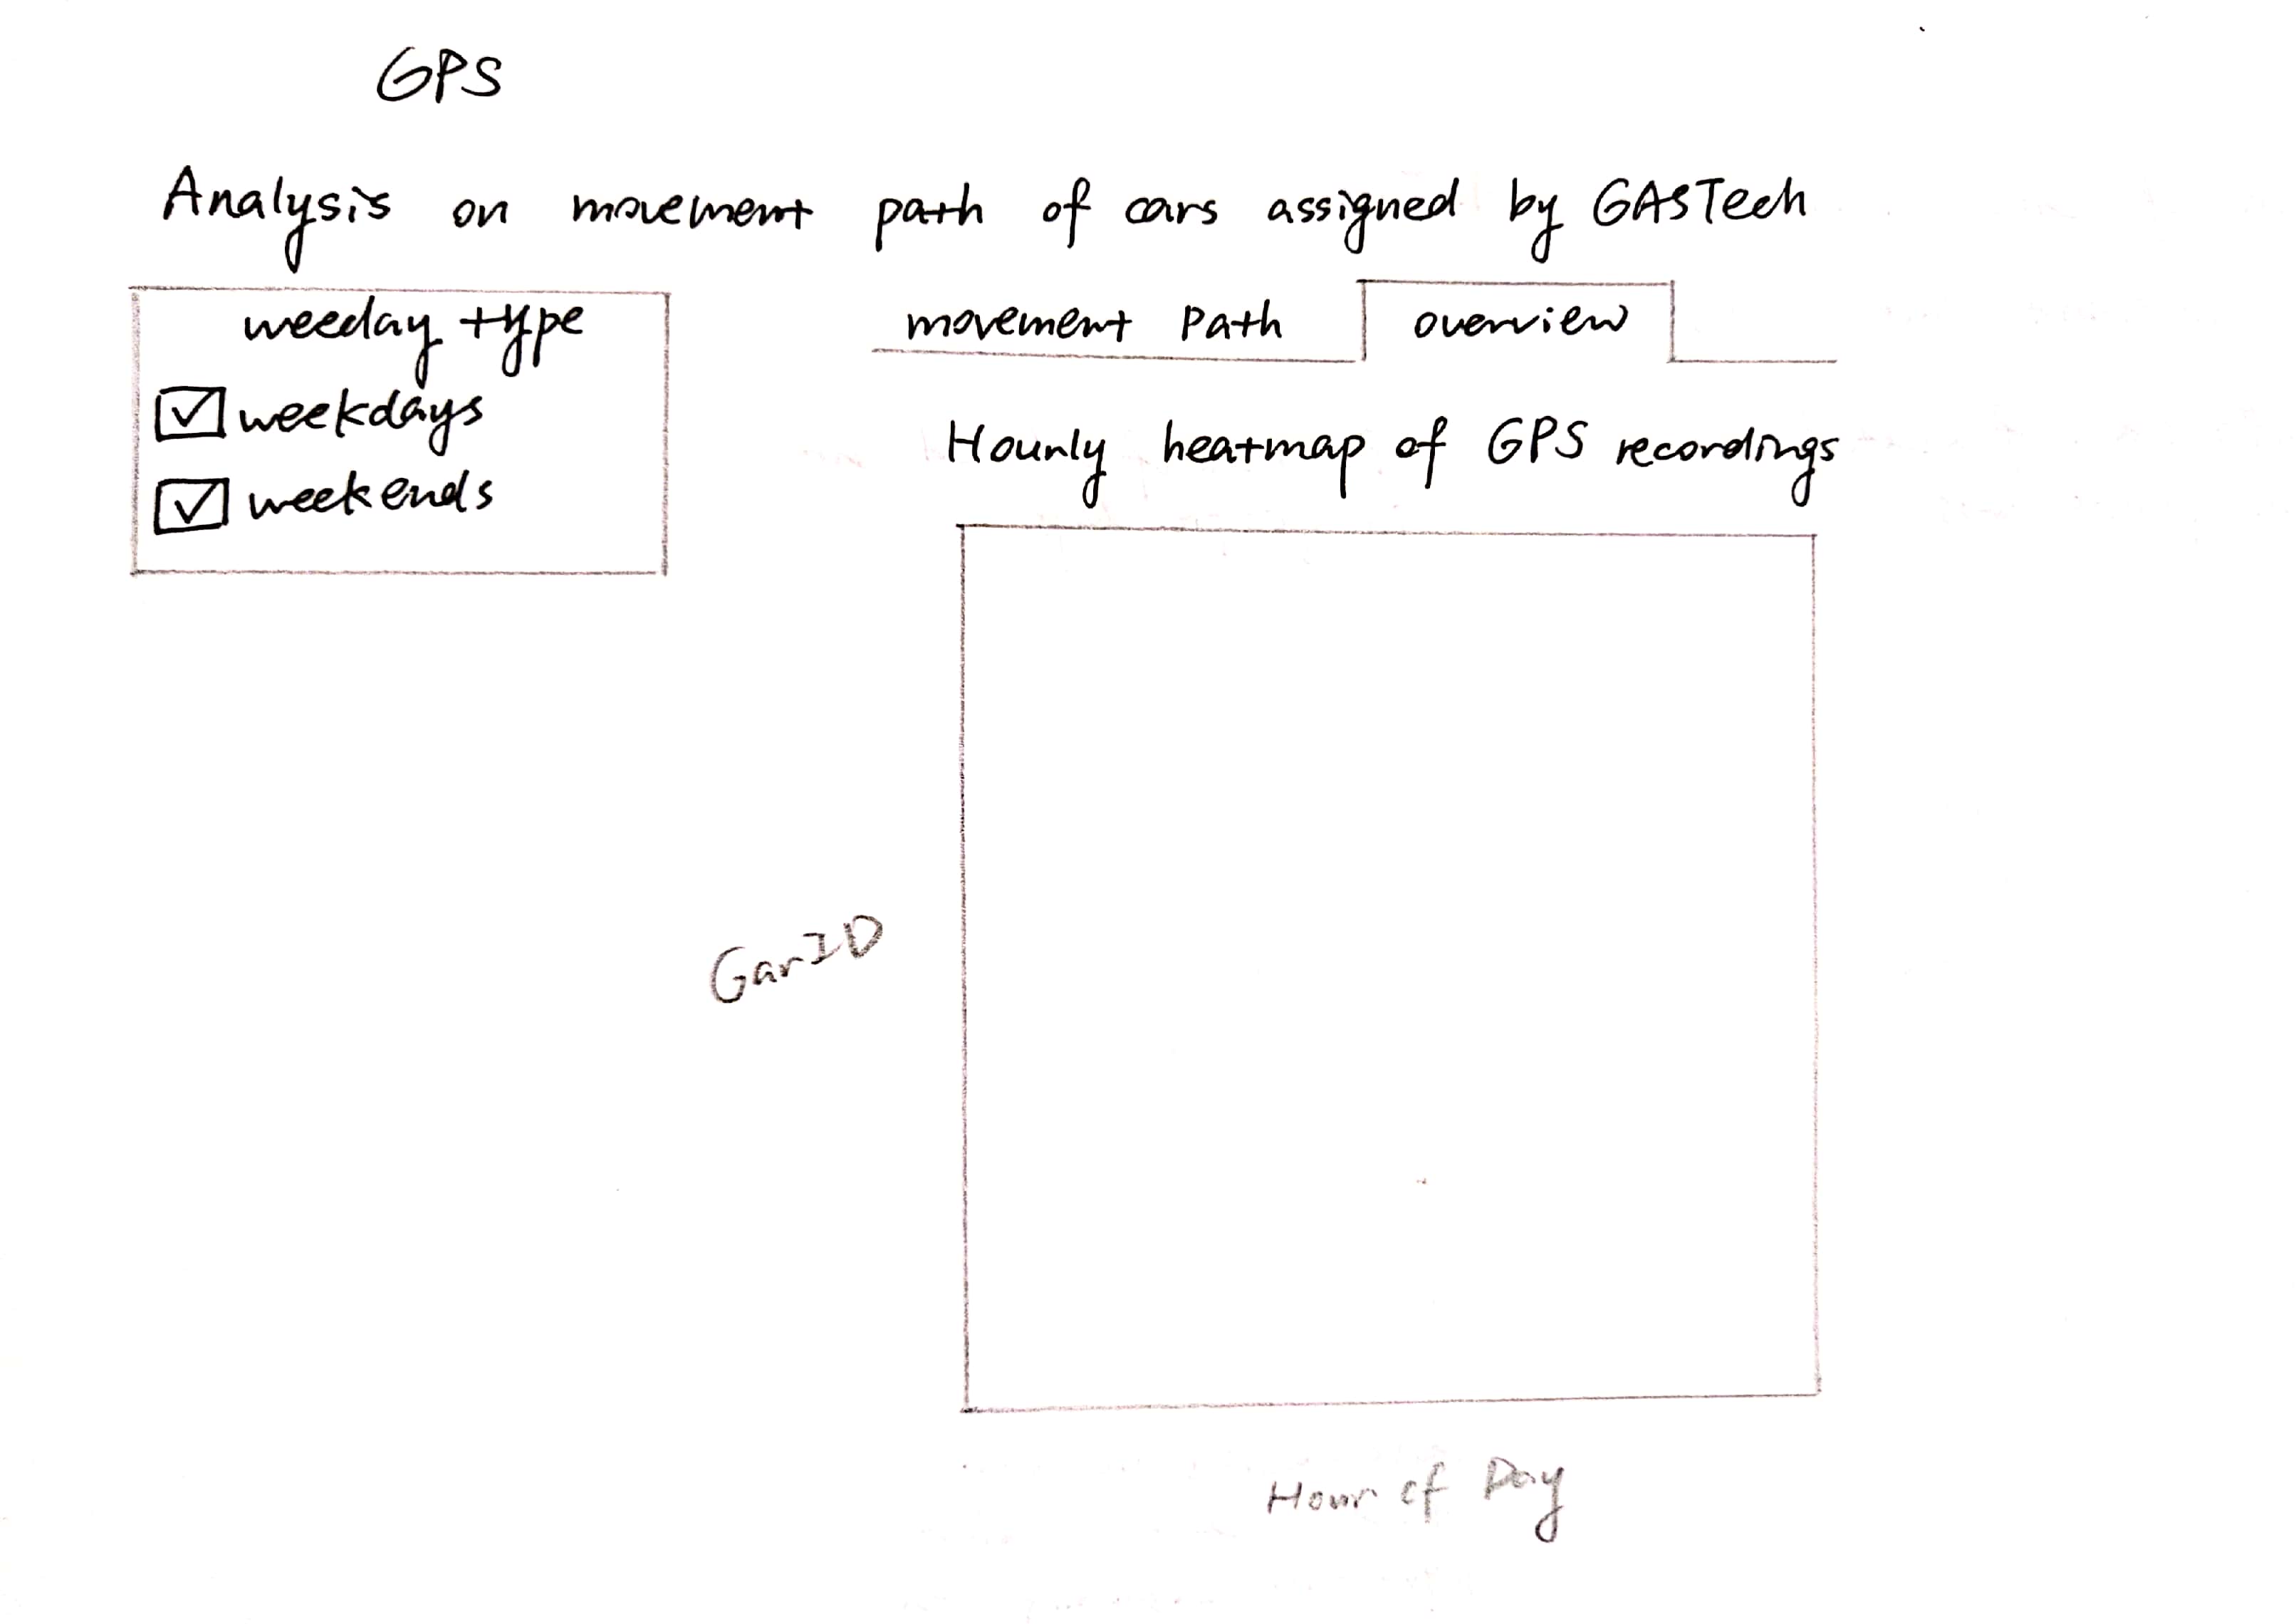 GPS
Analysis on movement path of cars assigned by GAsTech
weeday type
weekdays
weekends
movement Path
overview
Hourly heatmap of GPS recordings
CarID
Hour of Day